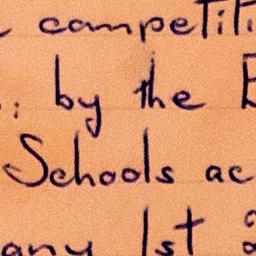 competiti
; by the E
Schools ac
any 1st 2